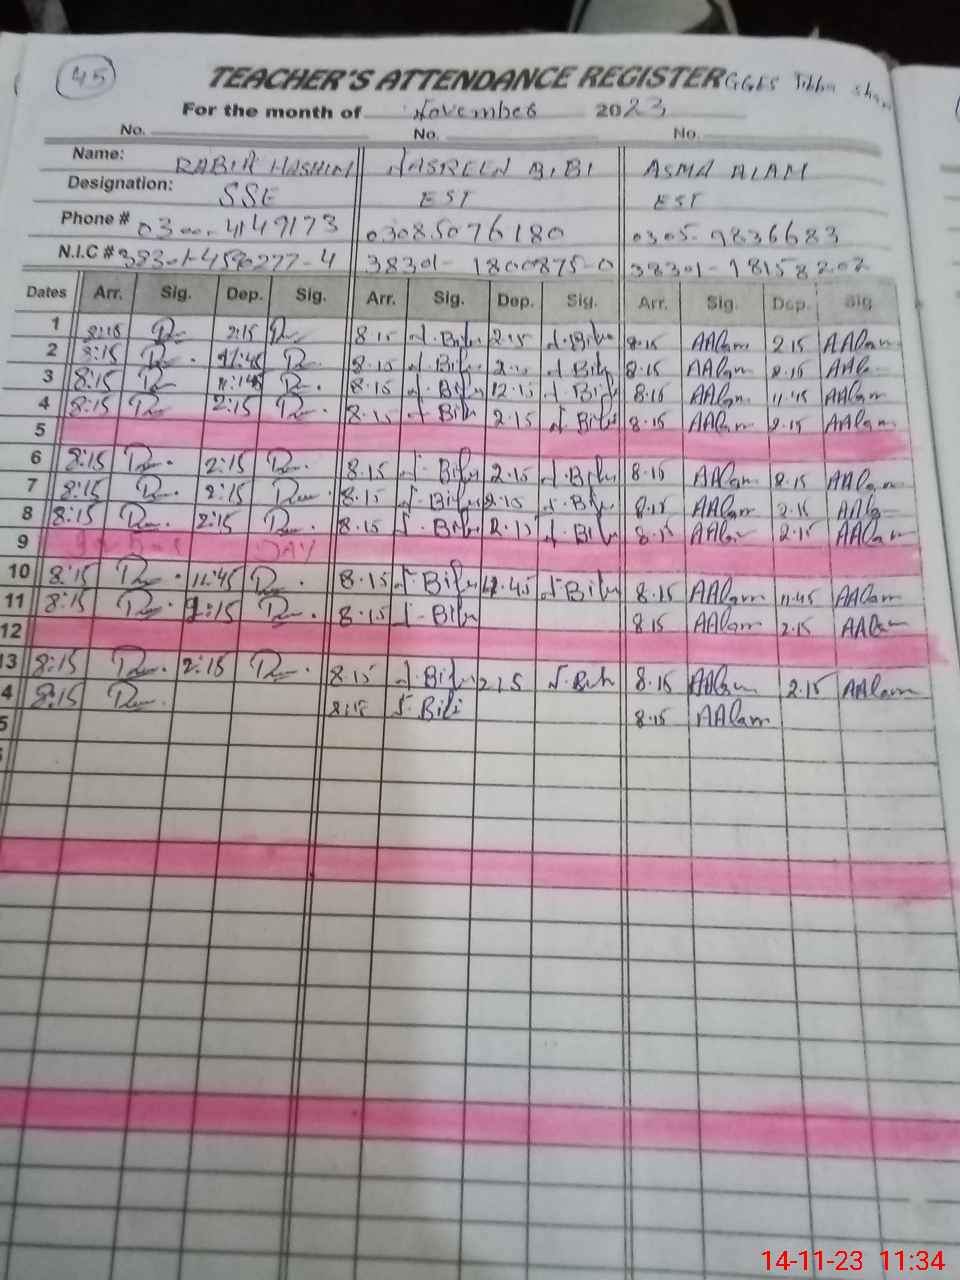 45
TEACHER'S ATTENDANCE REGISTER GGES Tibba
For the month of November 2023
No. No. No.
Name: RABIA HASHIM NASREEN BIBI ASMA ALAM
Designation: SSE EST EST
Phone # 0300-4149173 0308.5076180 0305-9836683
N.I.C # 38301-4590277-4 38301-1800875-0 38301-18158202
Dates Arr. Sig. Dep. Sig. Arr. Sig. Dep. Sig. Arr. Sig. Dep. Sig.
1 8:15 2:15 8.15 Bibi 2.15 Bibi 8.15 AAlam 2.15 AAlam
2 8:15 11:45 8.15 Bibi Bibi 8.15 AAlam 2.15
3 8:15 8.15 Bibi 12.15 Bibi 8.15 AAlam 11.45 AAlam
4 8:15 2:15 8.15 Bibi 2.15 Bibi 8.15 AAlam 2.15 AAlam
5
6 8:15 2:15 8.15 Bibi 2.15 Bibi 8.15 AAlam 2.15 AAlam
7 8:15 2:15 8.15 Bibi 2.15 Bibi 8.15 AAlam 2.15
8 8:15 2:15 8.15 Bibi 2.15 Bibi 8.15 AAlam 2.15 AAlam
9 DAY
10 8:15 11:45 8.15 Bibi 11.45 Bibi 8.15 AAlam 11.45 AAlam
11 8:15 2:15 8.15 Bibi 8.15 AAlam 2.15 AAlam
12
13 8:15 2:15 8.15 Bibi 215 Bibi 8.15 AAlam 2.15 AAlam
4 8:15 8.15 Bibi 8.15 AAlam
5
14-11-23 11:34